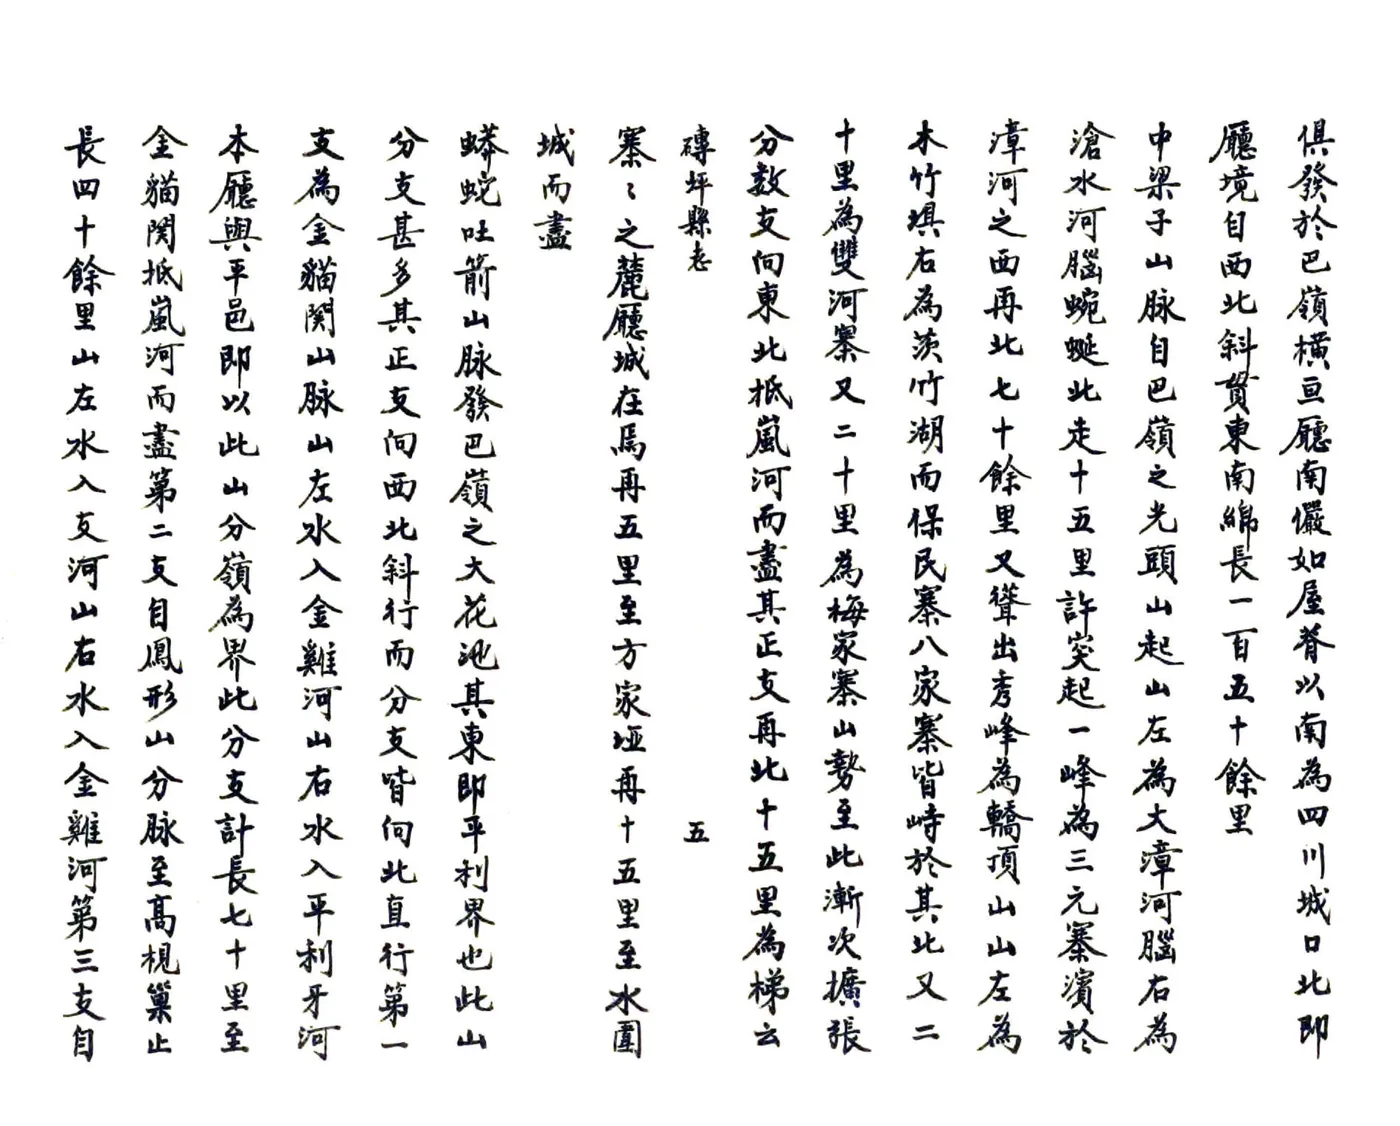 俱發於巴嶺橫亘廳南儼如屋脊以南為四川城口北即
廳境自西北斜貫東南綿長一百五十餘里
中梁子山脉自巴嶺之光頭山起山左為大漳河腦右為
滄水河腦蜿蜒北走十五里許突起一峰為三元寨濱於
漳河之西再北七十餘里又聳出秀峰為轎頂山山左為
木竹埧右為茨竹湖而保民寨八家寨皆峙於其北又二
十里為雙河寨又二十里為梅家寨山勢至此漸次擴張
分数支向東北抵嵐河而盡其正支再北十五里為梯云
磚坪縣志
五
寨〻之蔍廳城在焉再五里至方家埡再十五里至水圍
城而盡
蟒蛇吐箭山脉發巴嶺之大花池其東即平利界也此山
分支甚多其正支向西北斜行而分支皆向北直行第一
支為金貓関山脉山左水入金雞河山右水入平利牙河
本廳與平邑即以此山分嶺為界此分支計長七十里至
金貓関抵嵐河而盡第二支自鳳形山分脉至高梘巢止
長四十餘里山左水入支河山右水入金雞河第三支自